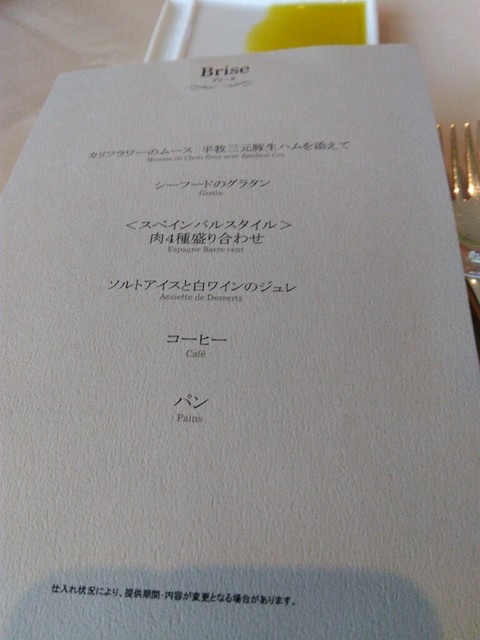 Brise
ブリーズ
カリフラワーのムース 平牧三元豚生ハムを添えて
Mousse de Chou-fleur avec Jambon Cru
シーフードのグラタン
Gratin
＜スペインバルスタイル＞
肉4種盛り合わせ
Espagne Barre vent
ソルトアイスと白ワインのジュレ
Assiette de Desserts
コーヒー
Café
パン
Pains
仕入れ状況により、提供期間・内容が変更となる場合があります。